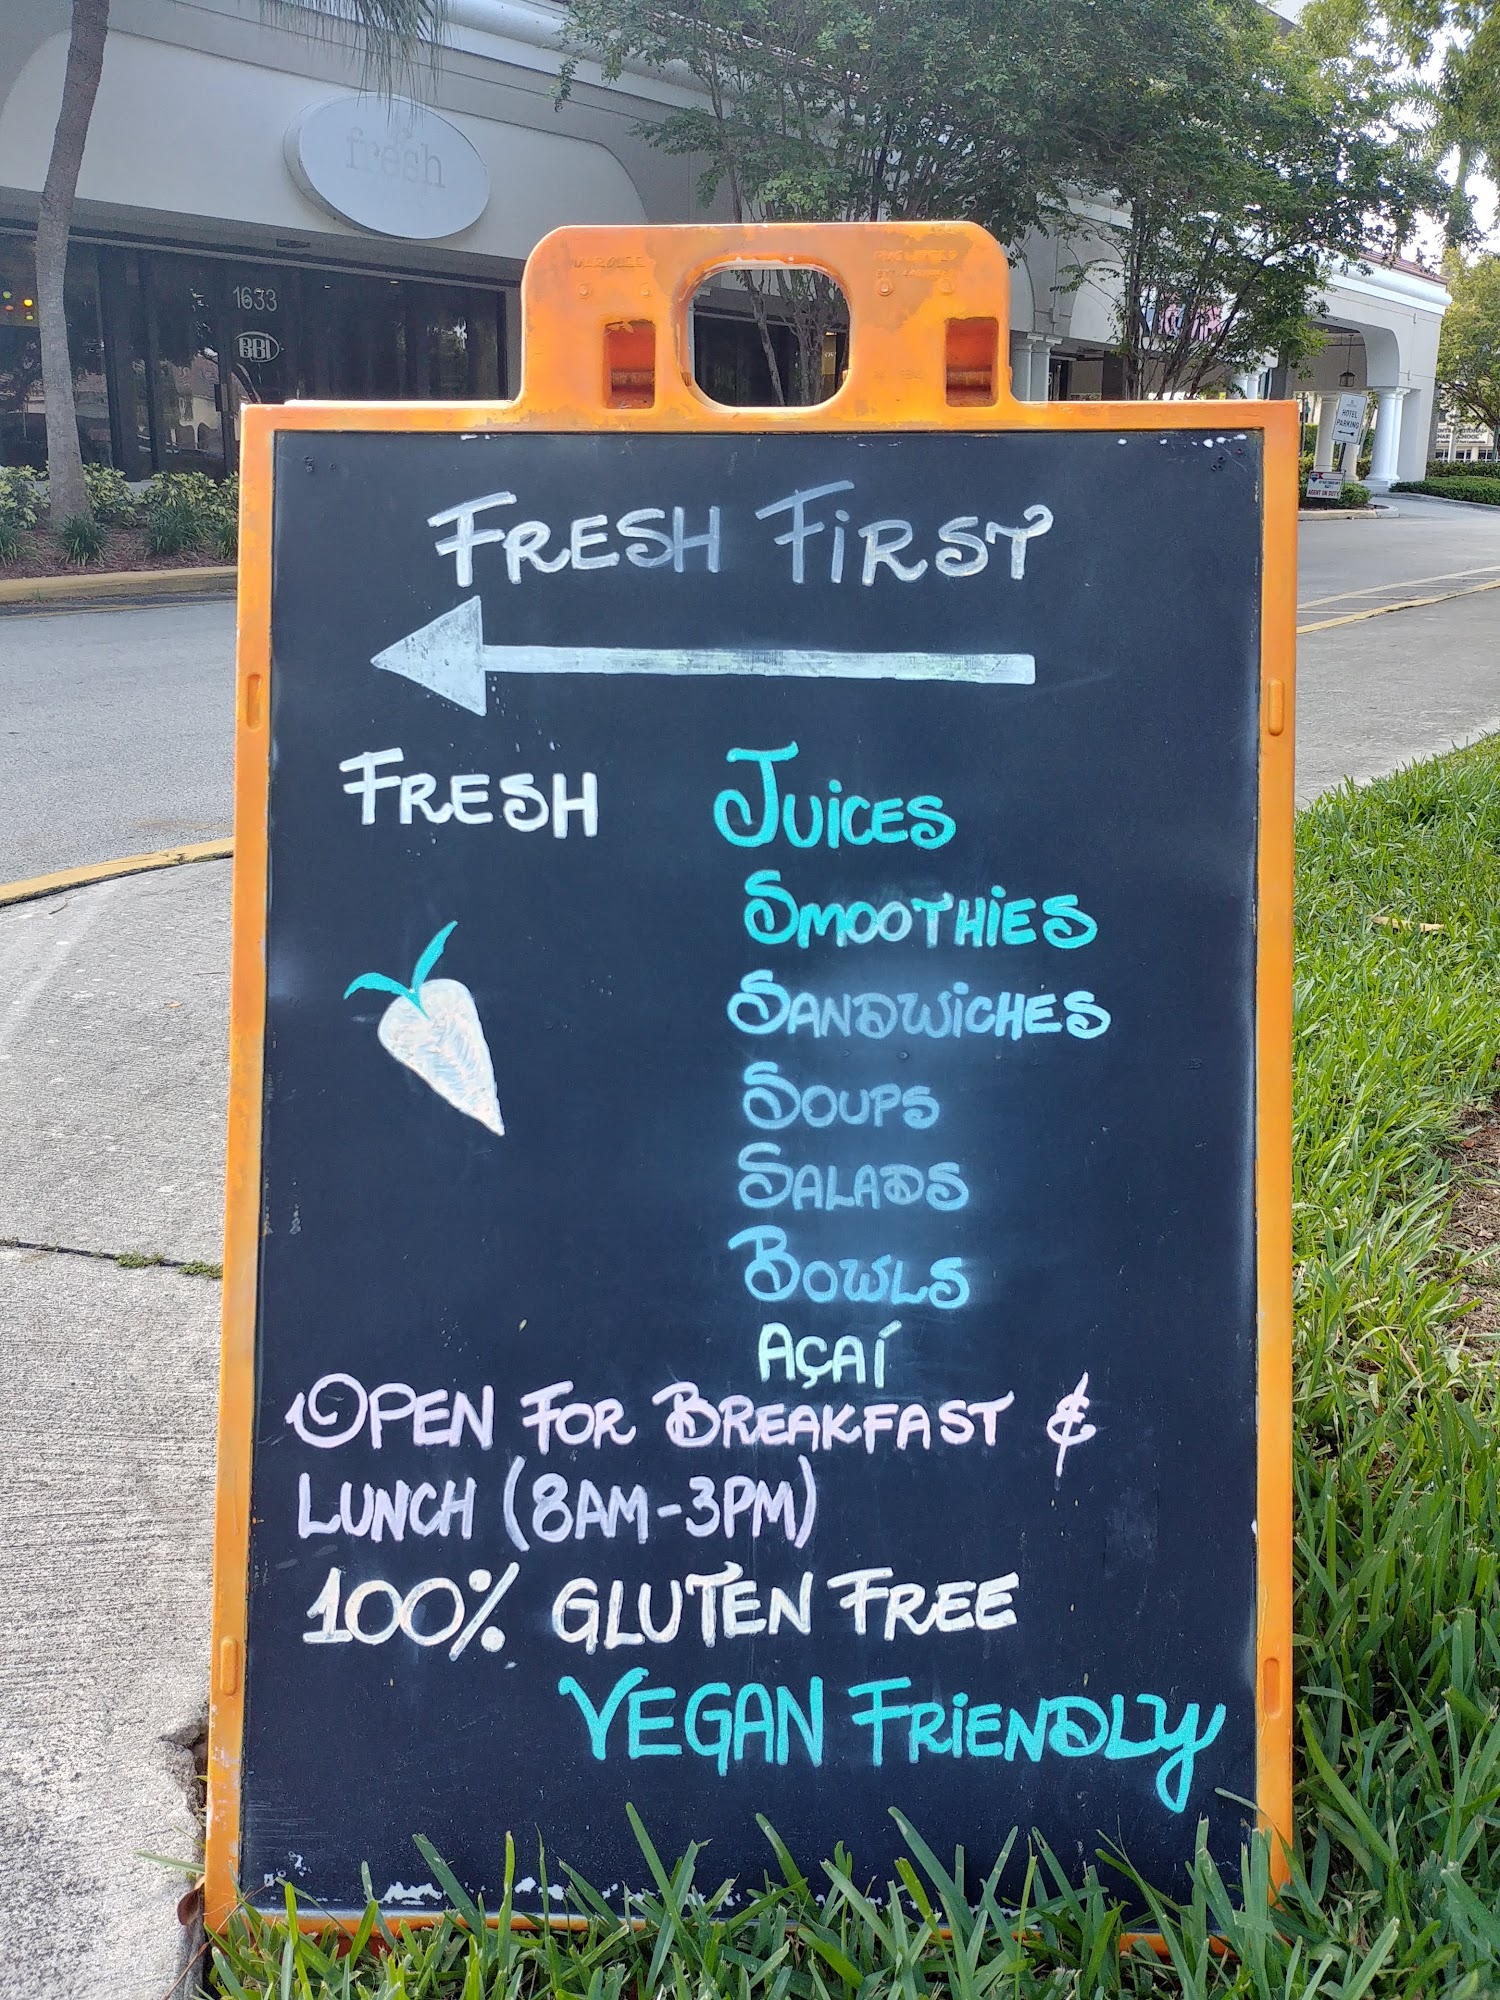 fresh
1633
BBI
HOTEL
PARKING
AGENT ON DUTY
FRESH FiRST
FRESH JUiCES
SMOOTHiES
SANDWiCHES
SOUPS
SALADS
BOWLS
AÇAÍ
OPEN FOR BREAKFAST &
LUNCH (8AM-3PM)
100% GLUTEN FREE
VEGAN FRiENDLY